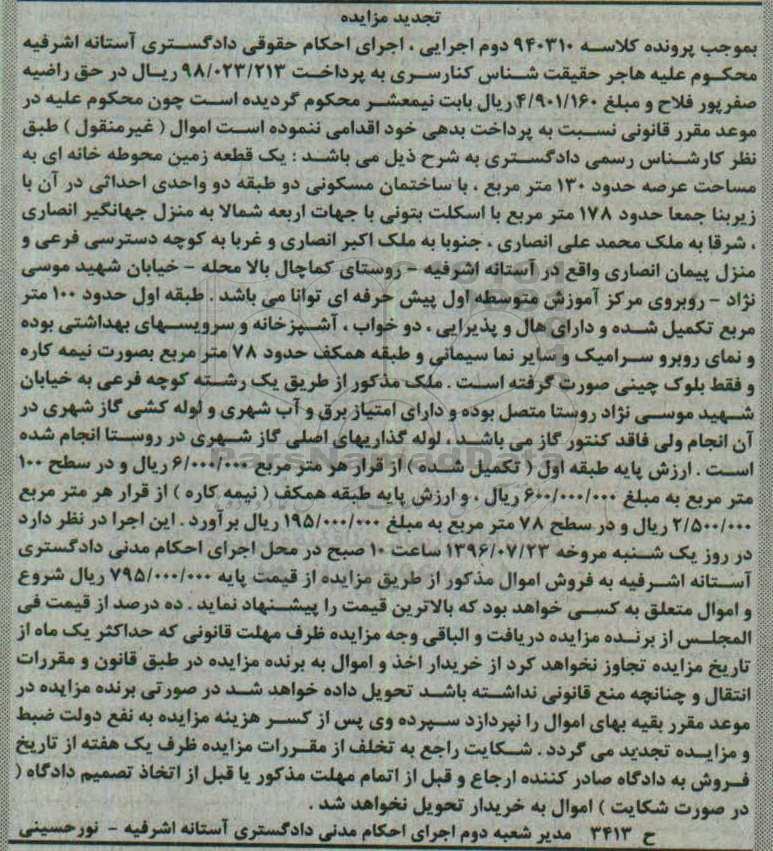 تجدید مزایده
بموجب پرونده کلاسه ۹۴۰۳۱۰ دوم اجرایی ، اجرای احکام حقوقی دادگستری آستانه اشرفیه
محکوم علیه هاجر حقیقت شناس کنارسری به پرداخت ۹۸/۰۲۳/۲۱۳ ریال در حق راضیه
صفرپور فلاح و مبلغ ۴/۹۰۱/۱۶۰ ریال بابت نیمعشر محکوم گردیده است چون محکوم علیه در
موعد مقرر قانونی نسبت به پرداخت بدهی خود اقدامی ننموده است اموال ( غیرمنقول ) طبق
نظر کارشناس رسمی دادگستری به شرح ذیل می باشد : یک قطعه زمین محوطه خانه ای به
مساحت عرصه حدود ۱۳۰ متر مربع ، با ساختمان مسکونی دو طبقه دو واحدی احداثی در آن با
زیربنا جمعا حدود ۱۷۸ متر مربع با اسکلت بتونی با جهات اربعه شمالا به منزل جهانگیر انصاری
، شرقا به ملک محمد علی انصاری ، جنوبا به ملک اکبر انصاری و غربا به کوچه دسترسی فرعی و
منزل پیمان انصاری واقع در آستانه اشرفیه - روستای کماچال بالا محله - خیابان شهید موسی
نژاد - روبروی مرکز آموزش متوسطه اول پیش حرفه ای توانا می باشد . طبقه اول حدود ۱۰۰ متر
مربع تکمیل شده و دارای هال و پذیرایی ، دو خواب ، آشپزخانه و سرویسهای بهداشتی بوده
و نمای روبرو سرامیک و سایر نما سیمانی و طبقه همکف حدود ۷۸ متر مربع بصورت نیمه کاره
و فقط بلوک چینی صورت گرفته است . ملک مذکور از طریق یک رشته کوچه فرعی به خیابان
شهید موسی نژاد روستا متصل بوده و دارای امتیاز برق و آب شهری و لوله کشی گاز شهری در
آن انجام ولی فاقد کنتور گاز می باشد ، لوله گذاریهای اصلی گاز شهری در روستا انجام شده
است . ارزش پایه طبقه اول ( تکمیل شده ) از قرار هر متر مربع ۶/۰۰۰/۰۰۰ ریال و در سطح ۱۰۰
متر مربع به مبلغ ۶۰۰/۰۰۰/۰۰۰ ریال ، و ارزش پایه طبقه همکف ( نیمه کاره ) از قرار هر متر مربع
۲/۵۰۰/۰۰۰ ریال و در سطح ۷۸ متر مربع به مبلغ ۱۹۵/۰۰۰/۰۰۰ ریال برآورد . این اجرا در نظر دارد
در روز یک شنبه مروخه ۱۳۹۶/۰۷/۲۳ ساعت ۱۰ صبح در محل اجرای احکام مدنی دادگستری
آستانه اشرفیه به فروش اموال مذکور از طریق مزایده از قیمت پایه ۷۹۵/۰۰۰/۰۰۰ ریال شروع
و اموال متعلق به کسی خواهد بود که بالاترین قیمت را پیشنهاد نماید . ده درصد از قیمت فی
المجلس از برنده مزایده دریافت و الباقی وجه مزایده ظرف مهلت قانونی که حداکثر یک ماه از
تاریخ مزایده تجاوز نخواهد کرد از خریدار اخذ و اموال به برنده مزایده در طبق قانون و مقررات
انتقال و چنانچه منع قانونی نداشته باشد تحویل داده خواهد شد در صورتی برنده مزایده در
موعد مقرر بقیه بهای اموال را نپردازد سپرده وی پس از کسر هزینه مزایده به نفع دولت ضبط
و مزایده تجدید می گردد . شکایت راجع به تخلف از مقررات مزایده ظرف یک هفته از تاریخ
فروش به دادگاه صادر کننده ارجاع و قبل از اتمام مهلت مذکور یا قبل از اتخاذ تصمیم دادگاه (
در صورت شکایت ) اموال به خریدار تحویل نخواهد شد .
ح ۳۴۱۳ مدیر شعبه دوم اجرای احکام مدنی دادگستری آستانه اشرفیه - نورحسینی
ParsNamadData